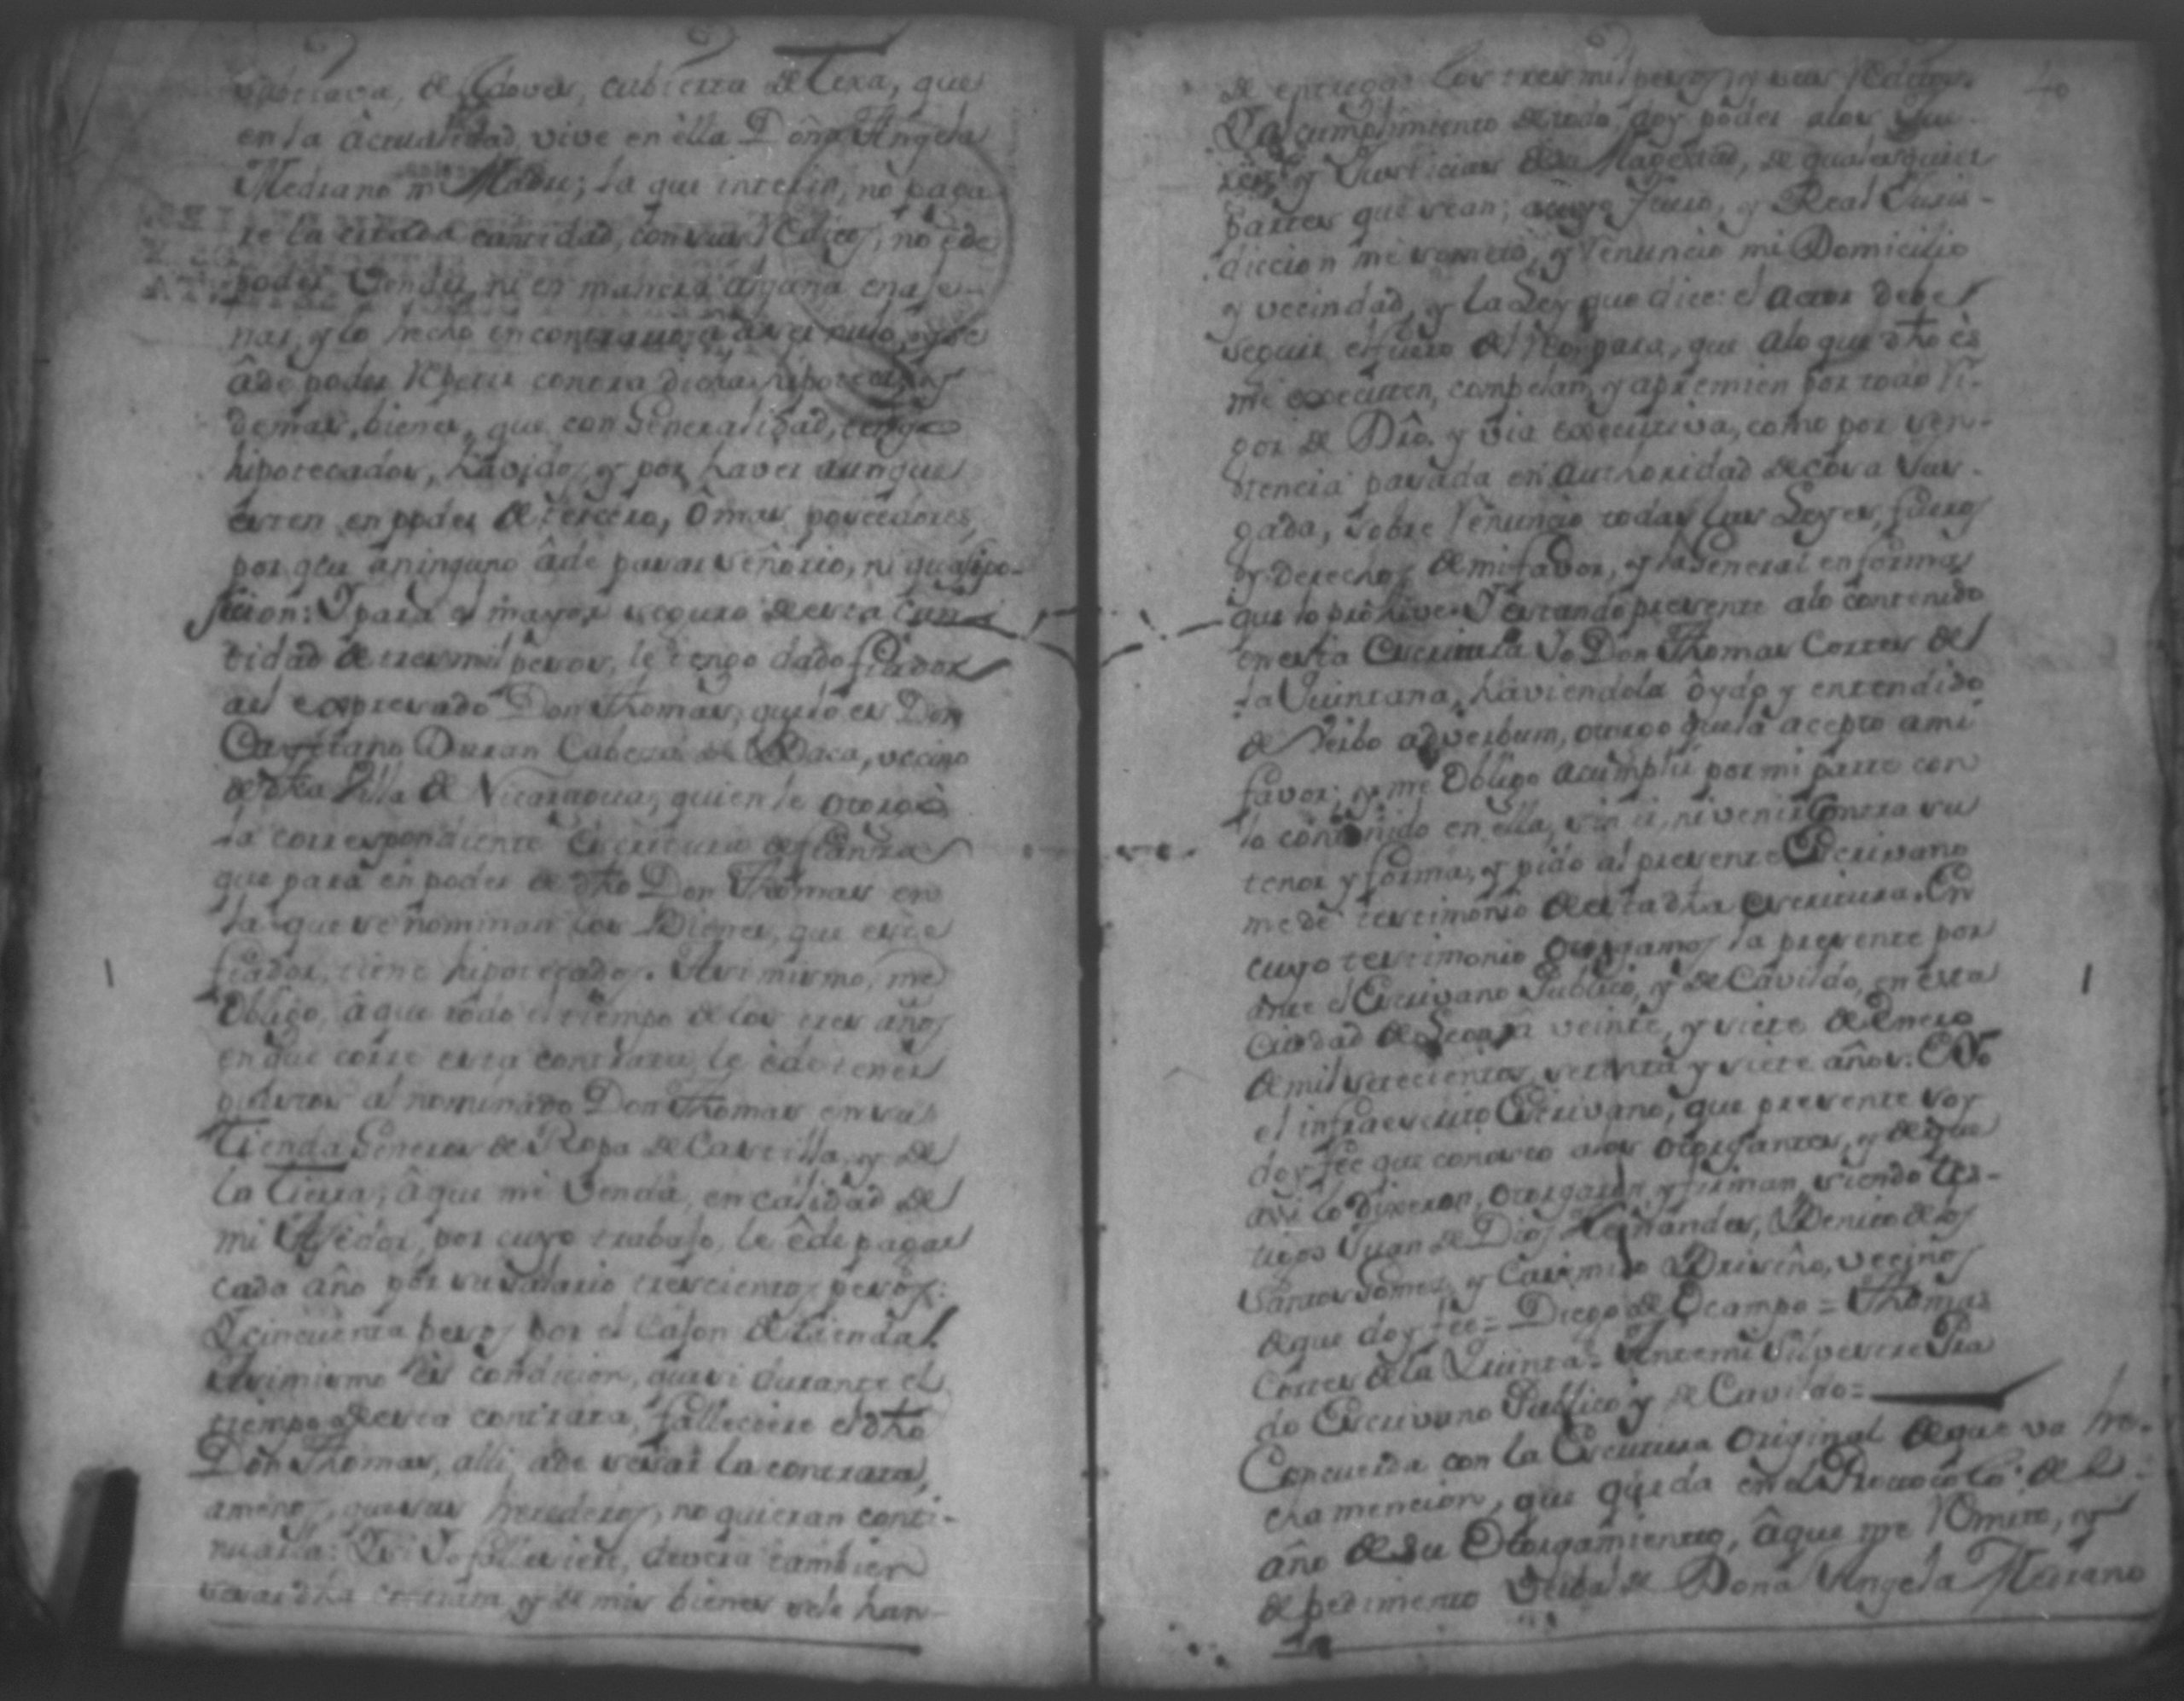 de Adoves, cubierta de Texa, que
en la àctualidad vive en èlla Doña Angela
Medrano mi Madre; la que interin, no paga
re la citada cantidad, con sus Reditos, no è de
poder Vender, ni en manera alguna enage-
nar, y lo hecho en contrario, à de ser nulo, y se
âde poder Repetir contra dichas hipotecas, y
demas bienes, que con Generalidad, tengo
hipotecados, havidos, y por haver aunque
esten en poder de tercero, ô mas poseedores,
por que âninguno âde pasar señorio, ni quasipo-
secion: Y para mayor seguro de esta can-
tidad de tres mil pesos, le tengo dado fiador
al expresado Don Thomas, que lo es Don
Cayetano Duran Cabeza de Baca, vecino
de dha Villa de Nicaragua, quien le otorgò
la correspondiente Escritura de fianza
que para en poder de dho Don Thomas en
la que se nominan los Bienes, que este
fiador, tiene hipotecados. Asimismo, me
Obligo, âque todo el tiempo de los tres años
en que corre esta contrata, le è de tener
puestos al nominado Don Thomas en su
Tienda Generos de Ropa de Castilla, y de
la Tierra, âque me Venda, en calidad de
mi Caxero, por cuyo trabajo, le ê de pagar
cada año por su salario trescientos pesos:
Y cincuenta pesos por el Cajon de tienda.
Asimismo es condicion, que si durante el
tiempo de esta contrata, falleciere el dho
Don Thomas, alli âde sesar la contrata,
amenos, que sus herederos, no quieran conti-
nuarla: Y si Yo falleciere, devera tambien
sesar dha contrata, y de mis bienes se le han
de entregar los tres mil pesos, y sus Reditos. 40
Y al cumplimiento de todo, doy poder alos Jue-
ces, y Justicias de su Magestad, de qualesquier
partes que sean; acuyo fuero, y Real Juris-
diccion me someto, y Renuncio mi Domicilio
y vecindad, y la Ley que dice: el Actor debe
seguir el fuero del Reo, para, que alo que dho es
me executen, compelan, y apremien por todo ri-
gor de Dro. y via executiva, como por sen-
tencia pasada en authoridad de cosa Jus-
gada, sobre Renuncio todas las Leyes, fueros
y derechos de mi favor, y la General en forma
que lo prohive. Y estando presente alo contenido
en esta Escritura Yo Don Thomas Cortes de
la Quintana, haviendola ôydo, y entendido
de Verbo ad verbum, otorgo que la acepto ami
favor; y me Obligo acumplir por mi parte con
lo contenido en ella, sin ir, ni venir Contra su
tenor y forma, y pido al presente Escrivano
me dè testimonio de esta dha escritura. En
cuyo testimonio Otorgamos la presente por
ante el Escrivano Publico, y de Cavildo, en esta
Ciudad de Leon â veinte, y siete de Enero
de mil setecientos, setenta y siete años. E Yo
el infraescrito Escrivano, que presente soy
doy fèe que conosco alos Otorgantes, y deque
asi lo dixeron, otorgaron y firman, siendo tes-
tigos Juan de Dios Hernandes, Benito delos
Santos Gomes, y Casimiro Briseño, vecinos
deque doy fèe = Diego de Ocampo = Thomas
Cortes de la Quinta = Antemi Silvestre Pra
do Escrivano Publico, y de Cavildo =
Concuerda con la Escritura Original deque va he-
cha mencion, que queda en el Protocolo del
año de su Otorgamiento, âque me Remito, y
de pedimento Verbal de Doña Angela Medrano